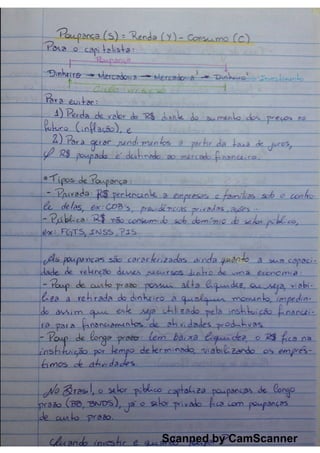 Poupança (S) = Renda (Y) - Consumo (C)
Para o capitalista:
Poupança
Dinheiro → Mercadoria → Mercadoria' → Dinheiro' → Investimento
Ciclo
Para evitar:
1) Perda de valor do R$ diante do aumento dos preços no
futuro (inflação), e
2) Para gerar rendimentos a partir da taxa de juros,
R$ poupado é destinado ao mercado financeiro.
* Tipos de Poupança:
- Privada: R$ pertencente a empresas e famílias sob o contro
le delas, ex: CDB's, previdências privadas, ações...
- Pública: R$ não consumido sob domínio do setor público,
ex: FGTS, INSS, PIS
As poupanças são caracterizadas ainda quanto à sua capaci-
dade de retenção desses recursos dentro de uma economia:
- Poup. de curto prazo possui alta liquidez, ou seja, viabi-
liza a retirada do dinheiro a qualquer momento, impedin-
do assim que este seja utilizado pela instituição financei-
ra para financiamentos de atividades produtivas.
- Poup. de longo prazo tem baixa liquidez, o R$ fica na
instituição por tempo determinado, viabilizando os emprés-
timos de atividades.
No Brasil, o setor público capitaliza poupanças de longo
prazo (BB, BNDS), já o setor privado fica com poupanças
de curto prazo.
Quando investir e
Scanned by CamScanner